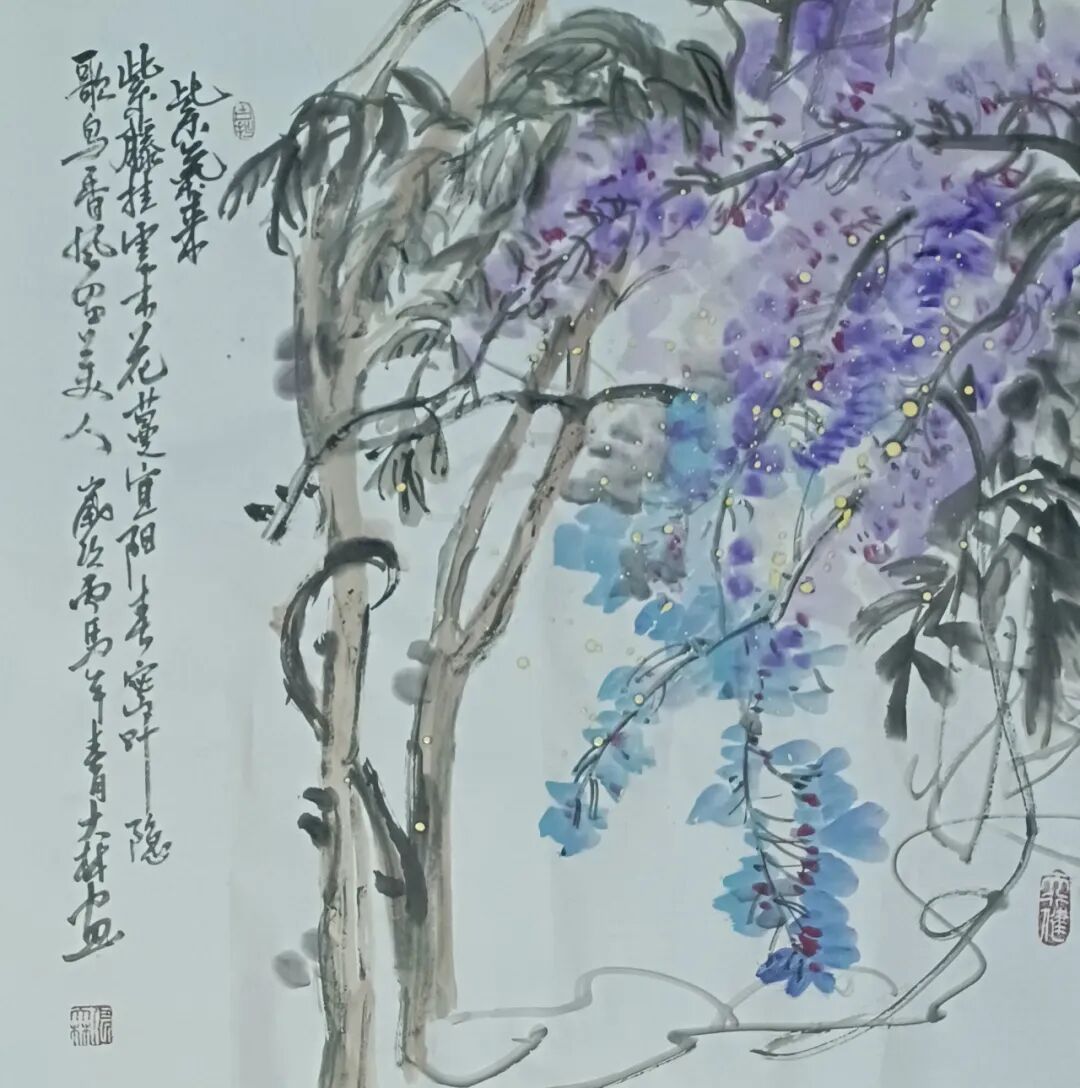 紫氣东来
紫藤挂雲木花蔓宜阳春密叶隐
歌鸟香风留美人 歲次丙馬年春月大林画